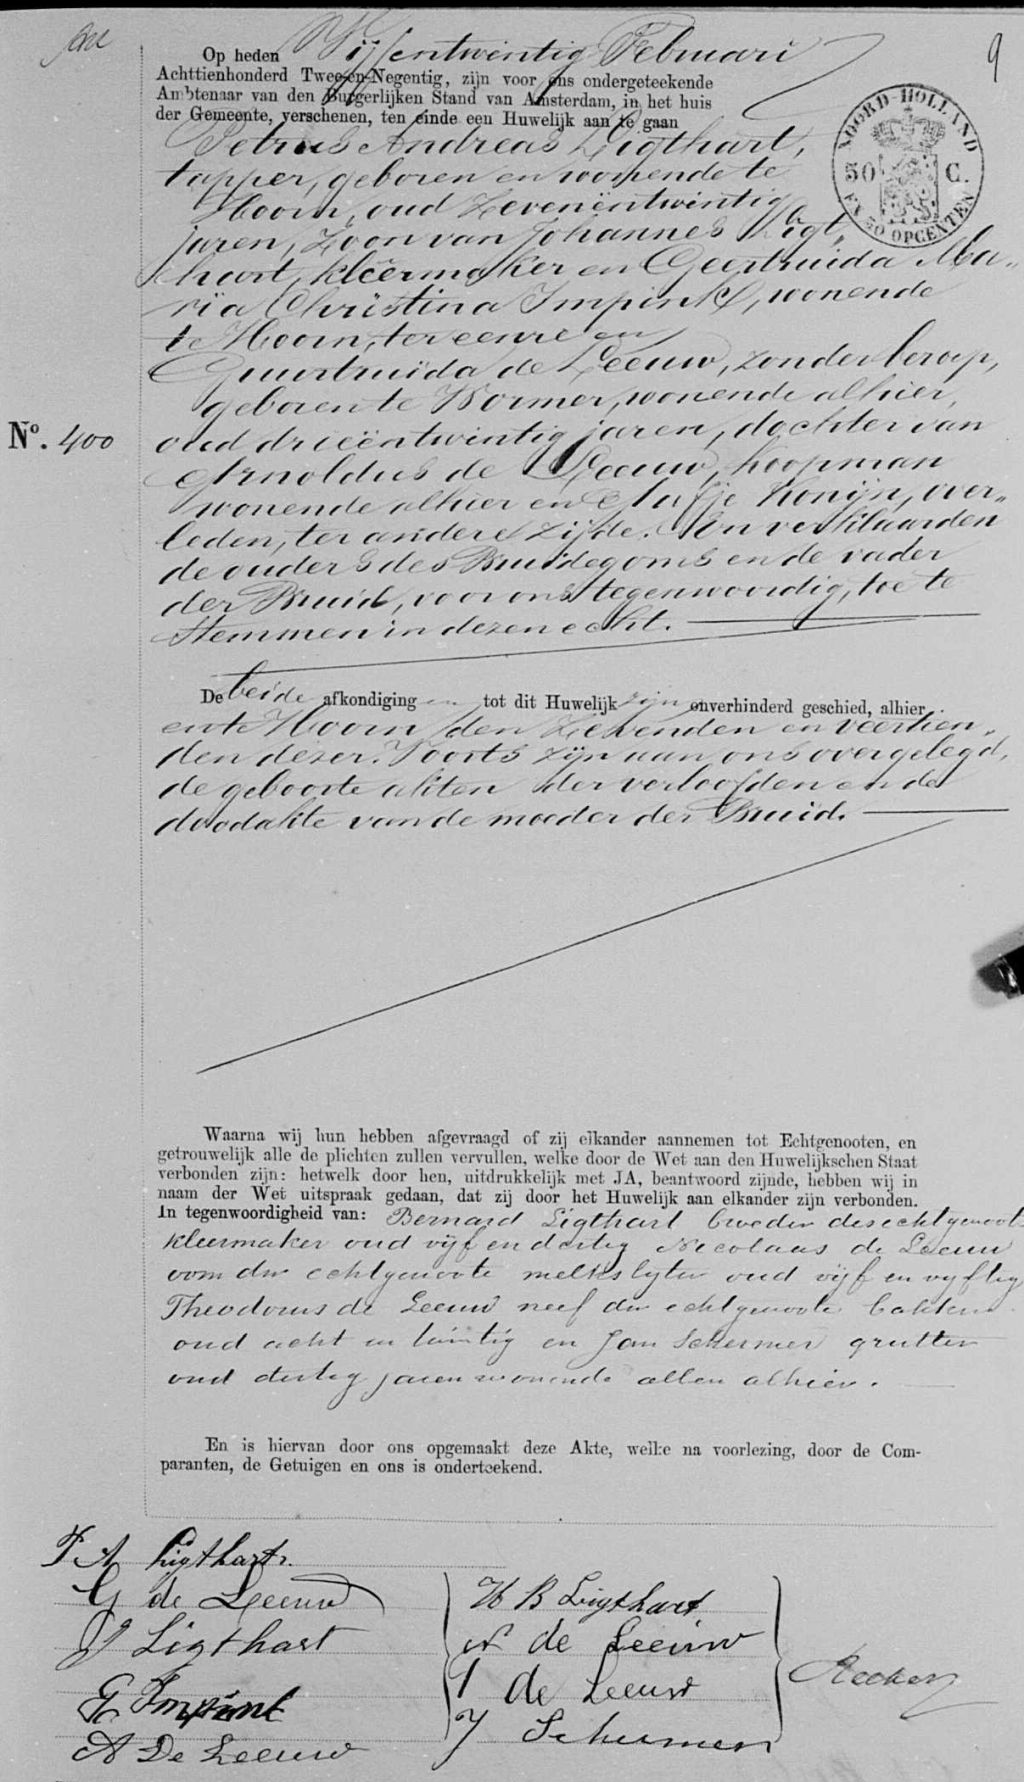 9
Op heden Vijfentwintig Februari
Achttienhonderd Twee-en-Negentig, zijn voor ons ondergeteekende
Ambtenaar van den Burgerlijken Stand van Amsterdam, in het huis
der Gemeente, verschenen, ten einde een Huwelijk aan te gaan
NOORD-HOLLAND
50 C.
EN 50 OPCENTEN
Petrus Andreas Ligthart,
tapper, geboren en wonende te
Hoorn, oud Zevenentwintig
jaren, Zoon van Johannes Ligt,,
hart, kleermaker en Geertruida Ma,,
ria Christina Impink, wonende
te Hoorn, ter eenre en
Guurtruida de Leeuw, zonder beroep,
geboren te Wormer, wonende alhier,
No. 400
oud drieëntwintig jaren, dochter van
Arnoldus de Leeuw, koopman
wonende alhier en Aafje Konijn, over,,
leden, ter andere zijde. En verklaarden
de ouders des Bruidegoms en de vader
der Bruid, voor ons tegenwoordig, toe te
stemmen in dezen echt.
De beide afkondigingen tot dit Huwelijk zijn onverhinderd geschied, alhier
en te Hoorn den Zevenden en veertien,,
den dezer. Voorts zijn aan ons overgelegd,
de geboorte akten der verloofden en de
doodakte van de moeder der Bruid.
Waarna wij hun hebben afgevraagd of zij elkander aannemen tot Echtgenooten, en
getrouwelijk alle de plichten zullen vervullen, welke door de Wet aan den Huwelijkschen Staat
verbonden zijn: hetwelk door hen, uitdrukkelijk met JA, beantwoord zijnde, hebben wij in
naam der Wet uitspraak gedaan, dat zij door het Huwelijk aan elkander zijn verbonden.
In tegenwoordigheid van: Bernard Ligthart broeder des echtgenoots
kleermaker oud vijf en dertig Nicolaas de Leeuw
oom der echtgenoote melkslyter oud vijf en vyftig
Theodorus de Leeuw neef der echtgenoote bakker
oud acht en twintig en Jan Schermer grutter
oud dertig jaren wonende allen alhier.
En is hiervan door ons opgemaakt deze Akte, welke na voorlezing, door de Com-
paranten, de Getuigen en ons is onderteekend.
P A Ligthart.
G de Leeuw
J Ligthart
G Impink
A De Leeuw
H B Ligthart
N de Leeuw
T de Leeuw
J Schermer